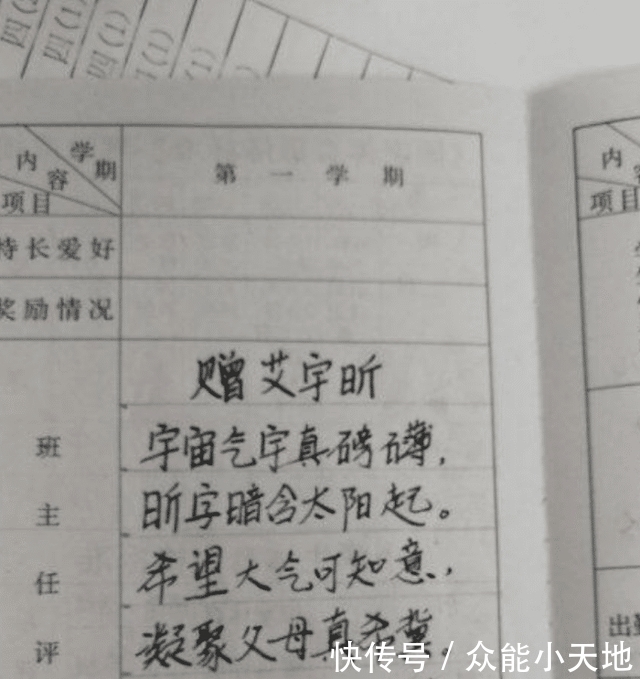 四(1)
四(1)
四(1)
(1)
(1)
内容 学期 项目
第一学期
内
项目
特长爱好
奖励情况
赠艾宇昕
宇宙气宇真磅礴,
班
昕字暗含太阳起。
主
希望大气可知意,
任
凝聚父母真希冀。
评
出勤
快传号 / 众能小天地